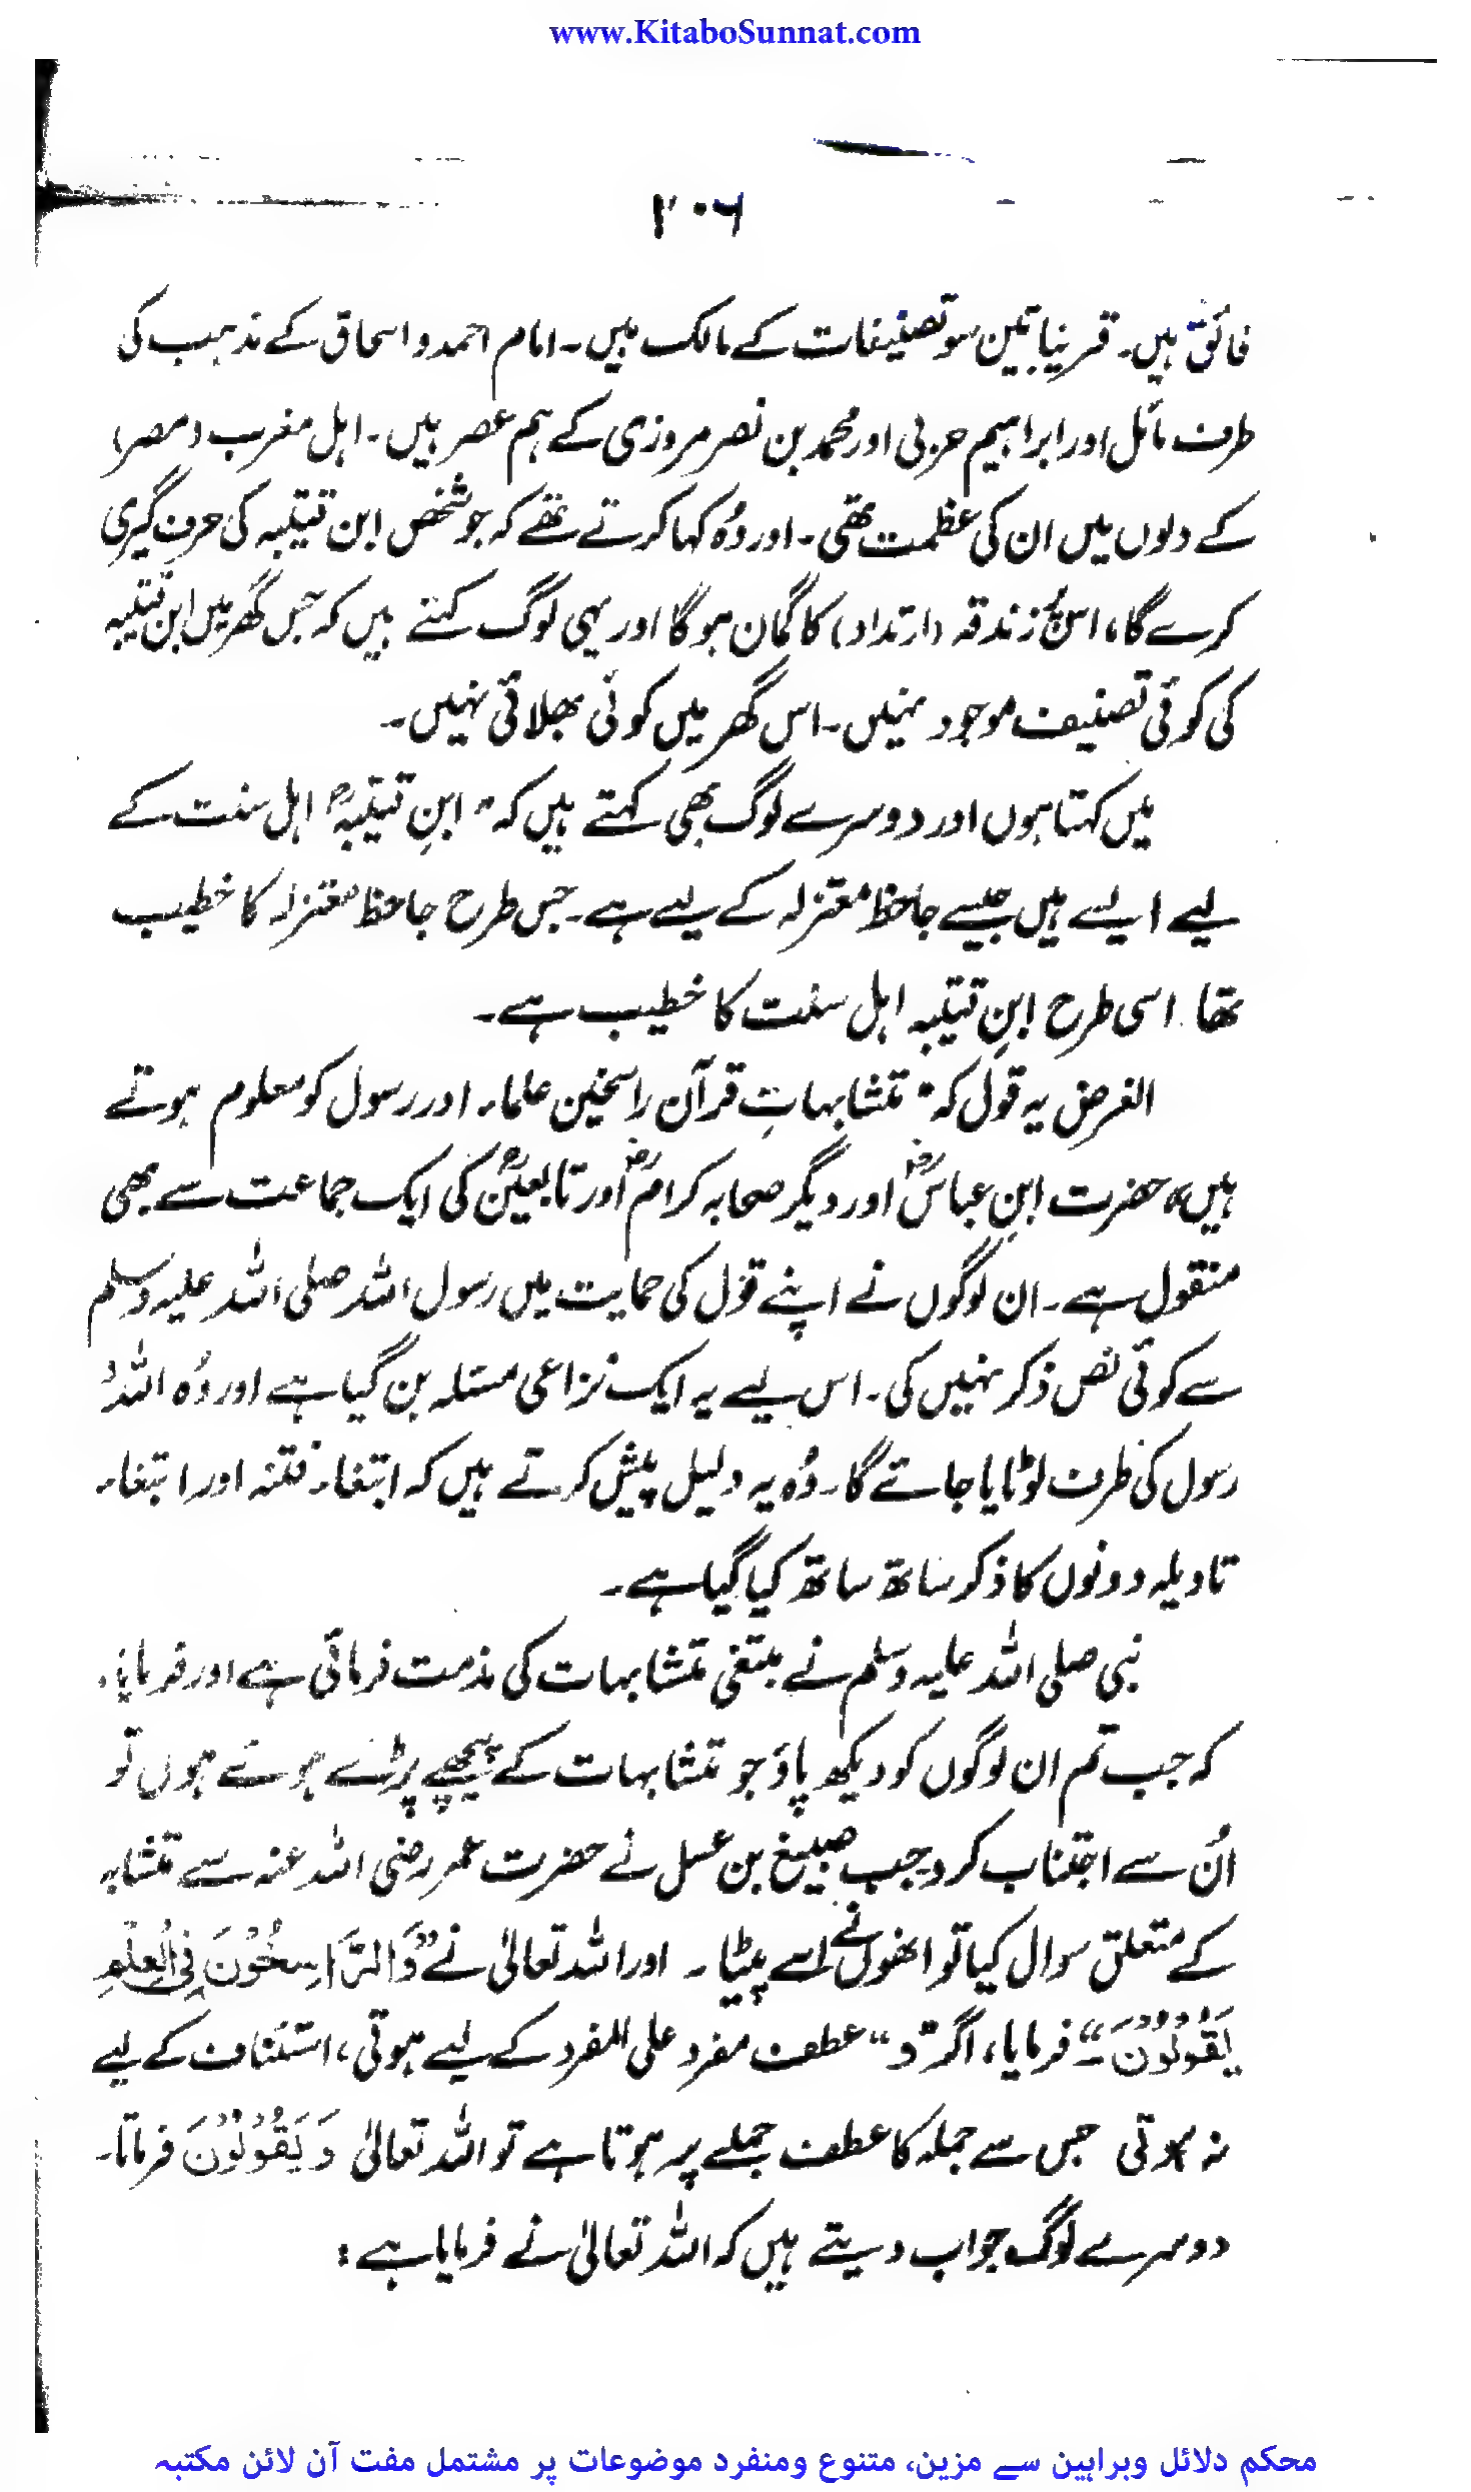 www.KitaboSunnat.com
۲۰۶
فائق ہیں۔ قریباً تین سو تصنیفات کے مالک ہیں۔ امام احمد و اسحاق کے مذہب کی
طرف مائل اور ابراہیم حربی اور محمد بن نصر مروزی کے ہم عصر ہیں۔ اہل مغرب (مصر)
کے دلوں میں ان کی عظمت تھی۔ اور وُہ کہا کرتے تھے کہ جو شخص ابن قتیبہ کی حرف گیری
کرے گا، اس پر زندقہ (ارتداد) کا گمان ہو گا اور یہی لوگ کہتے ہیں کہ جس گھر میں ابن قتیبہ
کی کوئی تصنیف موجود نہیں۔ اس گھر میں کوئی بھلائی نہیں۔
میں کہتا ہوں اور دوسرے لوگ بھی کہتے ہیں کہ " ابنِ قتیبہؒ" اہل سنت کے
لیے ایسے ہیں جیسے جاحظ معتزلہ کے لیے ہے۔ جس طرح جاحظ معتزلہ کا خطیب
تھا۔ اسی طرح ابنِ قتیبہ اہل سنت کا خطیب ہے۔
الغرض یہ قول کہ " متشابہاتِ قرآن راسخین علماء اور رسول کو معلوم ہوتے
ہیں" حضرت ابنِ عباسؓ اور دیگر صحابہ کرامؓ اور تابعینؒ کی ایک جماعت سے بھی
منقول ہے۔ ان لوگوں نے اپنے قول کی حمایت میں رسول اللہ صلی اللہ علیہ وسلم
سے کوئی نص ذکر نہیں کی۔ اس لیے یہ ایک نزاعی مسئلہ بن گیا ہے اور وُہ اللہ و
رسول کی طرف لوٹایا جائے گا۔ وُہ یہ دلیل پیش کرتے ہیں کہ ابتغاء فتنہ اور ابتغاء
تاویلہ دونوں کا ذکر ساتھ ساتھ کیا گیا ہے۔
نبی صلی اللہ علیہ وسلم نے مبتغی متشابہات کی مذمت فرمائی ہے اور فرمایا،
کہ جب تم ان لوگوں کو دیکھ پاؤ جو متشابہات کے پیچھے پڑے ہوئے ہوں تو
اُن سے اجتناب کرو جب صبیغ بن عسل نے حضرت عمر رضی اللہ عنہ سے متشابہ
کے متعلق سوال کیا تو انھوں نے اسے پیٹا۔ اور اللہ تعالیٰ نے "وَالرَّاسِخُوْنَ فِی الْعِلْمِ
یَقُوْلُوْنَ" فرمایا، اگر "و" عطف مفرد علی المفرد کے لیے ہوتی، استئناف کے لیے
نہ ہوتی جس سے جملہ کا عطف جملے پر ہوتا ہے تو اللہ تعالیٰ وَیَقُوْلُوْنَ فرماتا۔
دوسرے لوگ جواب دیتے ہیں کہ اللہ تعالیٰ نے فرمایا ہے :
محکم دلائل وبراہین سے مزین، متنوع ومنفرد موضوعات پر مشتمل مفت آن لائن مکتبہ